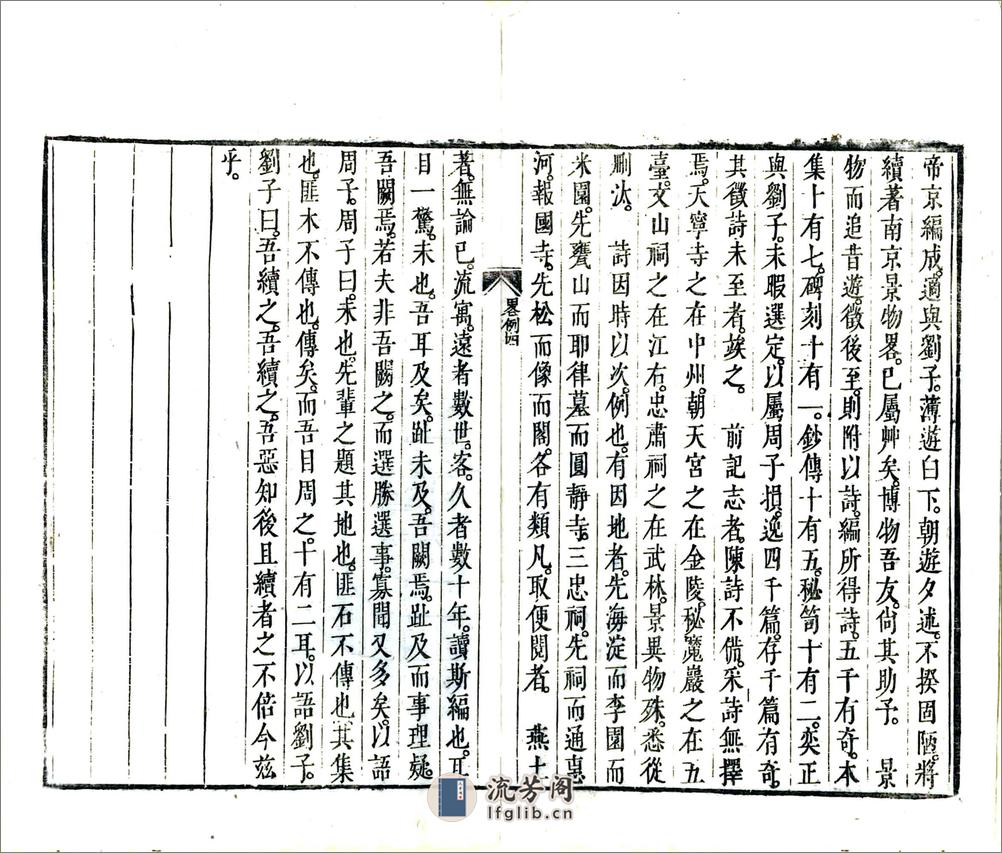 帝京編成。適與劉子。薄遊白下。朝遊夕述。不揆固陋。將
續著南京景物畧。已屬艸矣。博物吾友。尙其助予。　景
物而追昔遊。徵後至。則附以詩。編所得詩。五千有奇。本
集十有七。碑刻十有一。鈔傳十有五。秘笥十有二。奕正
與劉子。未暇選定。以屬周子損。逸四千篇。存千篇有奇。
其徵詩未至者。竢之。　前記志者。陳詩不俻。采詩無擇
焉。天寧寺之在中州。朝天宮之在金陵。秘魔巖之在五
臺。文山祠之在江右。忠肅祠之在武林。景異物殊。悉從
刪汰。　詩因時以次。例也。有因地者。先海淀而李園而
米園。先甕山而耶律墓而圓靜寺。三忠祠。先祠而通惠
河。報國寺。先松而像而閣。各有類凡。取便閱者。　燕土
畧例四
著。無論已。流寓。遠者數世。客。久者數十年。讀斯編也。耳
目一驚。未也。吾耳及矣。趾未及。吾闕焉。趾及而事理疑。
吾闕焉。若夫非吾闕之。而選勝選事。寡聞又多矣。以語
周子。周子曰。未也。先輩之題其地也。匪石不傳也。其集
也。匪木不傳也。傳矣。而吾目周之。十有二耳。以語劉子。
劉子曰。吾續之。吾續之。吾惡知後且續者之不倍今玆
乎。
流芳阁
lfglib.cn